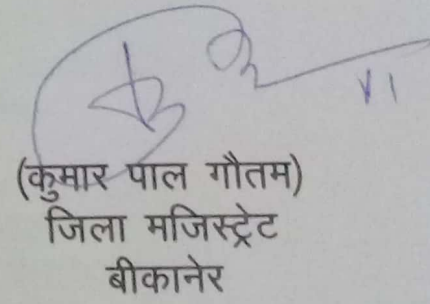 (कुमार पाल गौतम)
जिला मजिस्ट्रेट
बीकानेर